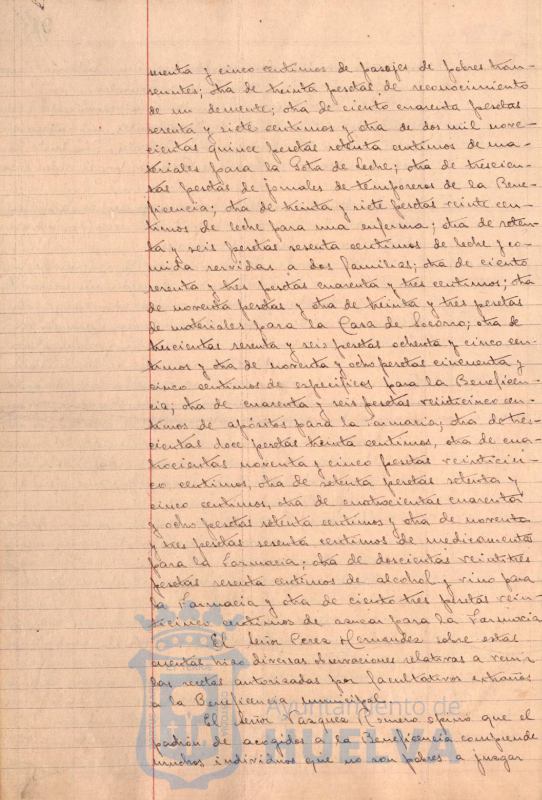 sesenta y cinco centimos de pasajes de pobres tran-
seuntes; otra de treinta pesetas de reconocimiento
de un demente; otra de ciento cuarenta pesetas
sesenta y siete centimos y otra de dos mil nove-
cientas quince pesetas setenta centimos de ma-
teriales para la Gota de Leche; otra de trescien-
tas pesetas de jornales de temporeros de la Bene-
ficencia; otra de treinta y siete pesetas veinte cen-
timos de leche para una enferma; otra de seten-
ta y seis pesetas sesenta centimos de leche y co-
mida servidas a dos familias; otra de ciento
sesenta y tres pesetas cuarenta y tres centimos; otra
de noventa pesetas y otra de treinta y tres pesetas
de materiales para la Casa de Socorro; otra de
trescientas sesenta y seis pesetas ochenta y cinco cen-
timos y otra de noventa y ocho pesetas cincuenta y
cinco centimos de especificos para la Beneficen-
cia; otra de cuarenta y seis pesetas veinticinco cen-
timos de apósitos para la Farmacia; otra de tres-
cientas doce pesetas treinta centimos, otra de cua-
trocientas noventa y cinco pesetas veinticin-
co centimos, otra de setenta pesetas setenta y
cinco centimos, otra de cuatrocientas cuarenta
y ocho pesetas setenta centimos y otra de noventa
y tres pesetas sesenta centimos de medicamentos
para la Farmacia; otra de doscientas veintitres
pesetas sesenta centimos de alcohol y vino para
la Farmacia y otra de ciento tres pesetas vein-
ticinco centimos de azucar para la Farmacia
El señor Cerez Hernandez sobre estas
cuentas hizo diversas observaciones relativas a venir
las recetas autorizadas por facultativos extraños
a la Beneficencia municipal.
El señor Vazquez Romero opinó que el
padrón de acogidos a la Beneficencia comprende
muchos individuos que no son pobres a juzgar
Ayuntamiento de
HUELVA